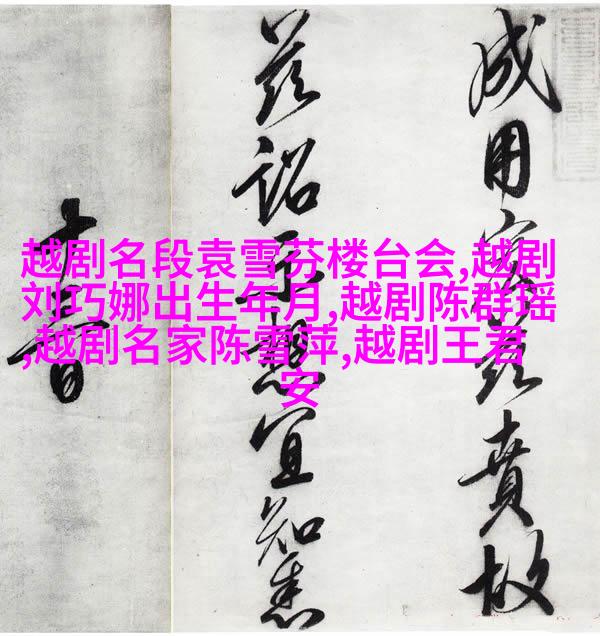 越剧名段袁雪芬楼台会,越剧
刘巧娜出生年月,越剧陈群瑶
,越剧名家陈雪萍,越剧王君
安
成用宏兹賁故
兹詔示想宜知悉